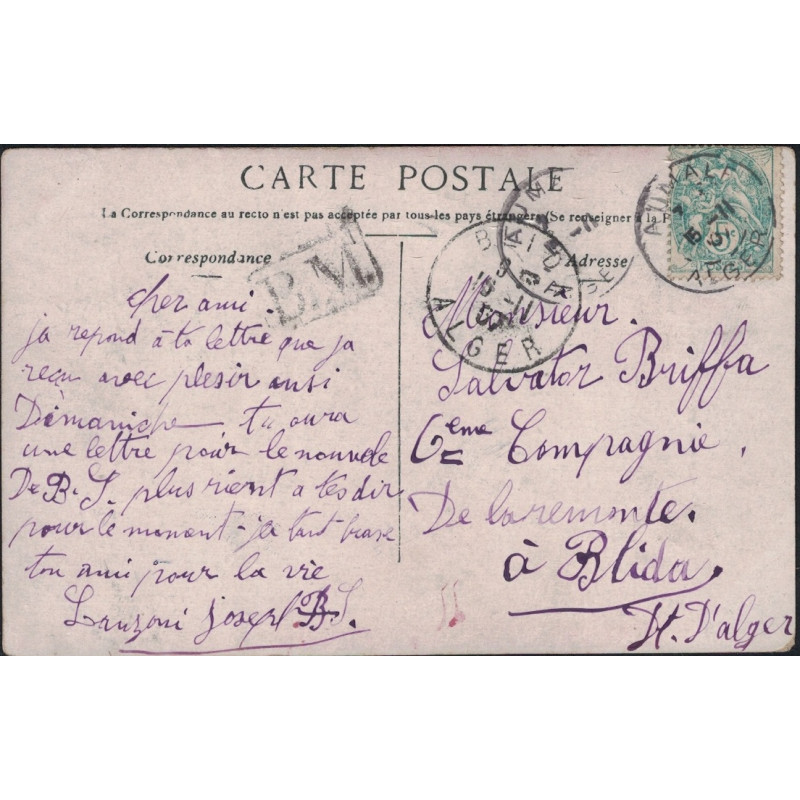 CARTE POSTALE
La Correspondance au recto n'est pas acceptée par tous les pays étrangers (Se renseigner à la P
Correspondance
Adresse
B.M.
AUMALE
ALGER
BLIDA
ALGER
5c
cher ami
ja repond à ta lettre que ja
reçu avec plesir ansi
Démaniche tu oura
une lettre pour le nouvele
De B.S. plus rient a tes dir
pour le monant - ja tant brase
ton ami pour la vie
Lanzoni joseph B.S.
Monsieur.
Salvator Briffa
6eme Compagnie
De la remonte.
à Blida.
Dt. D'alger